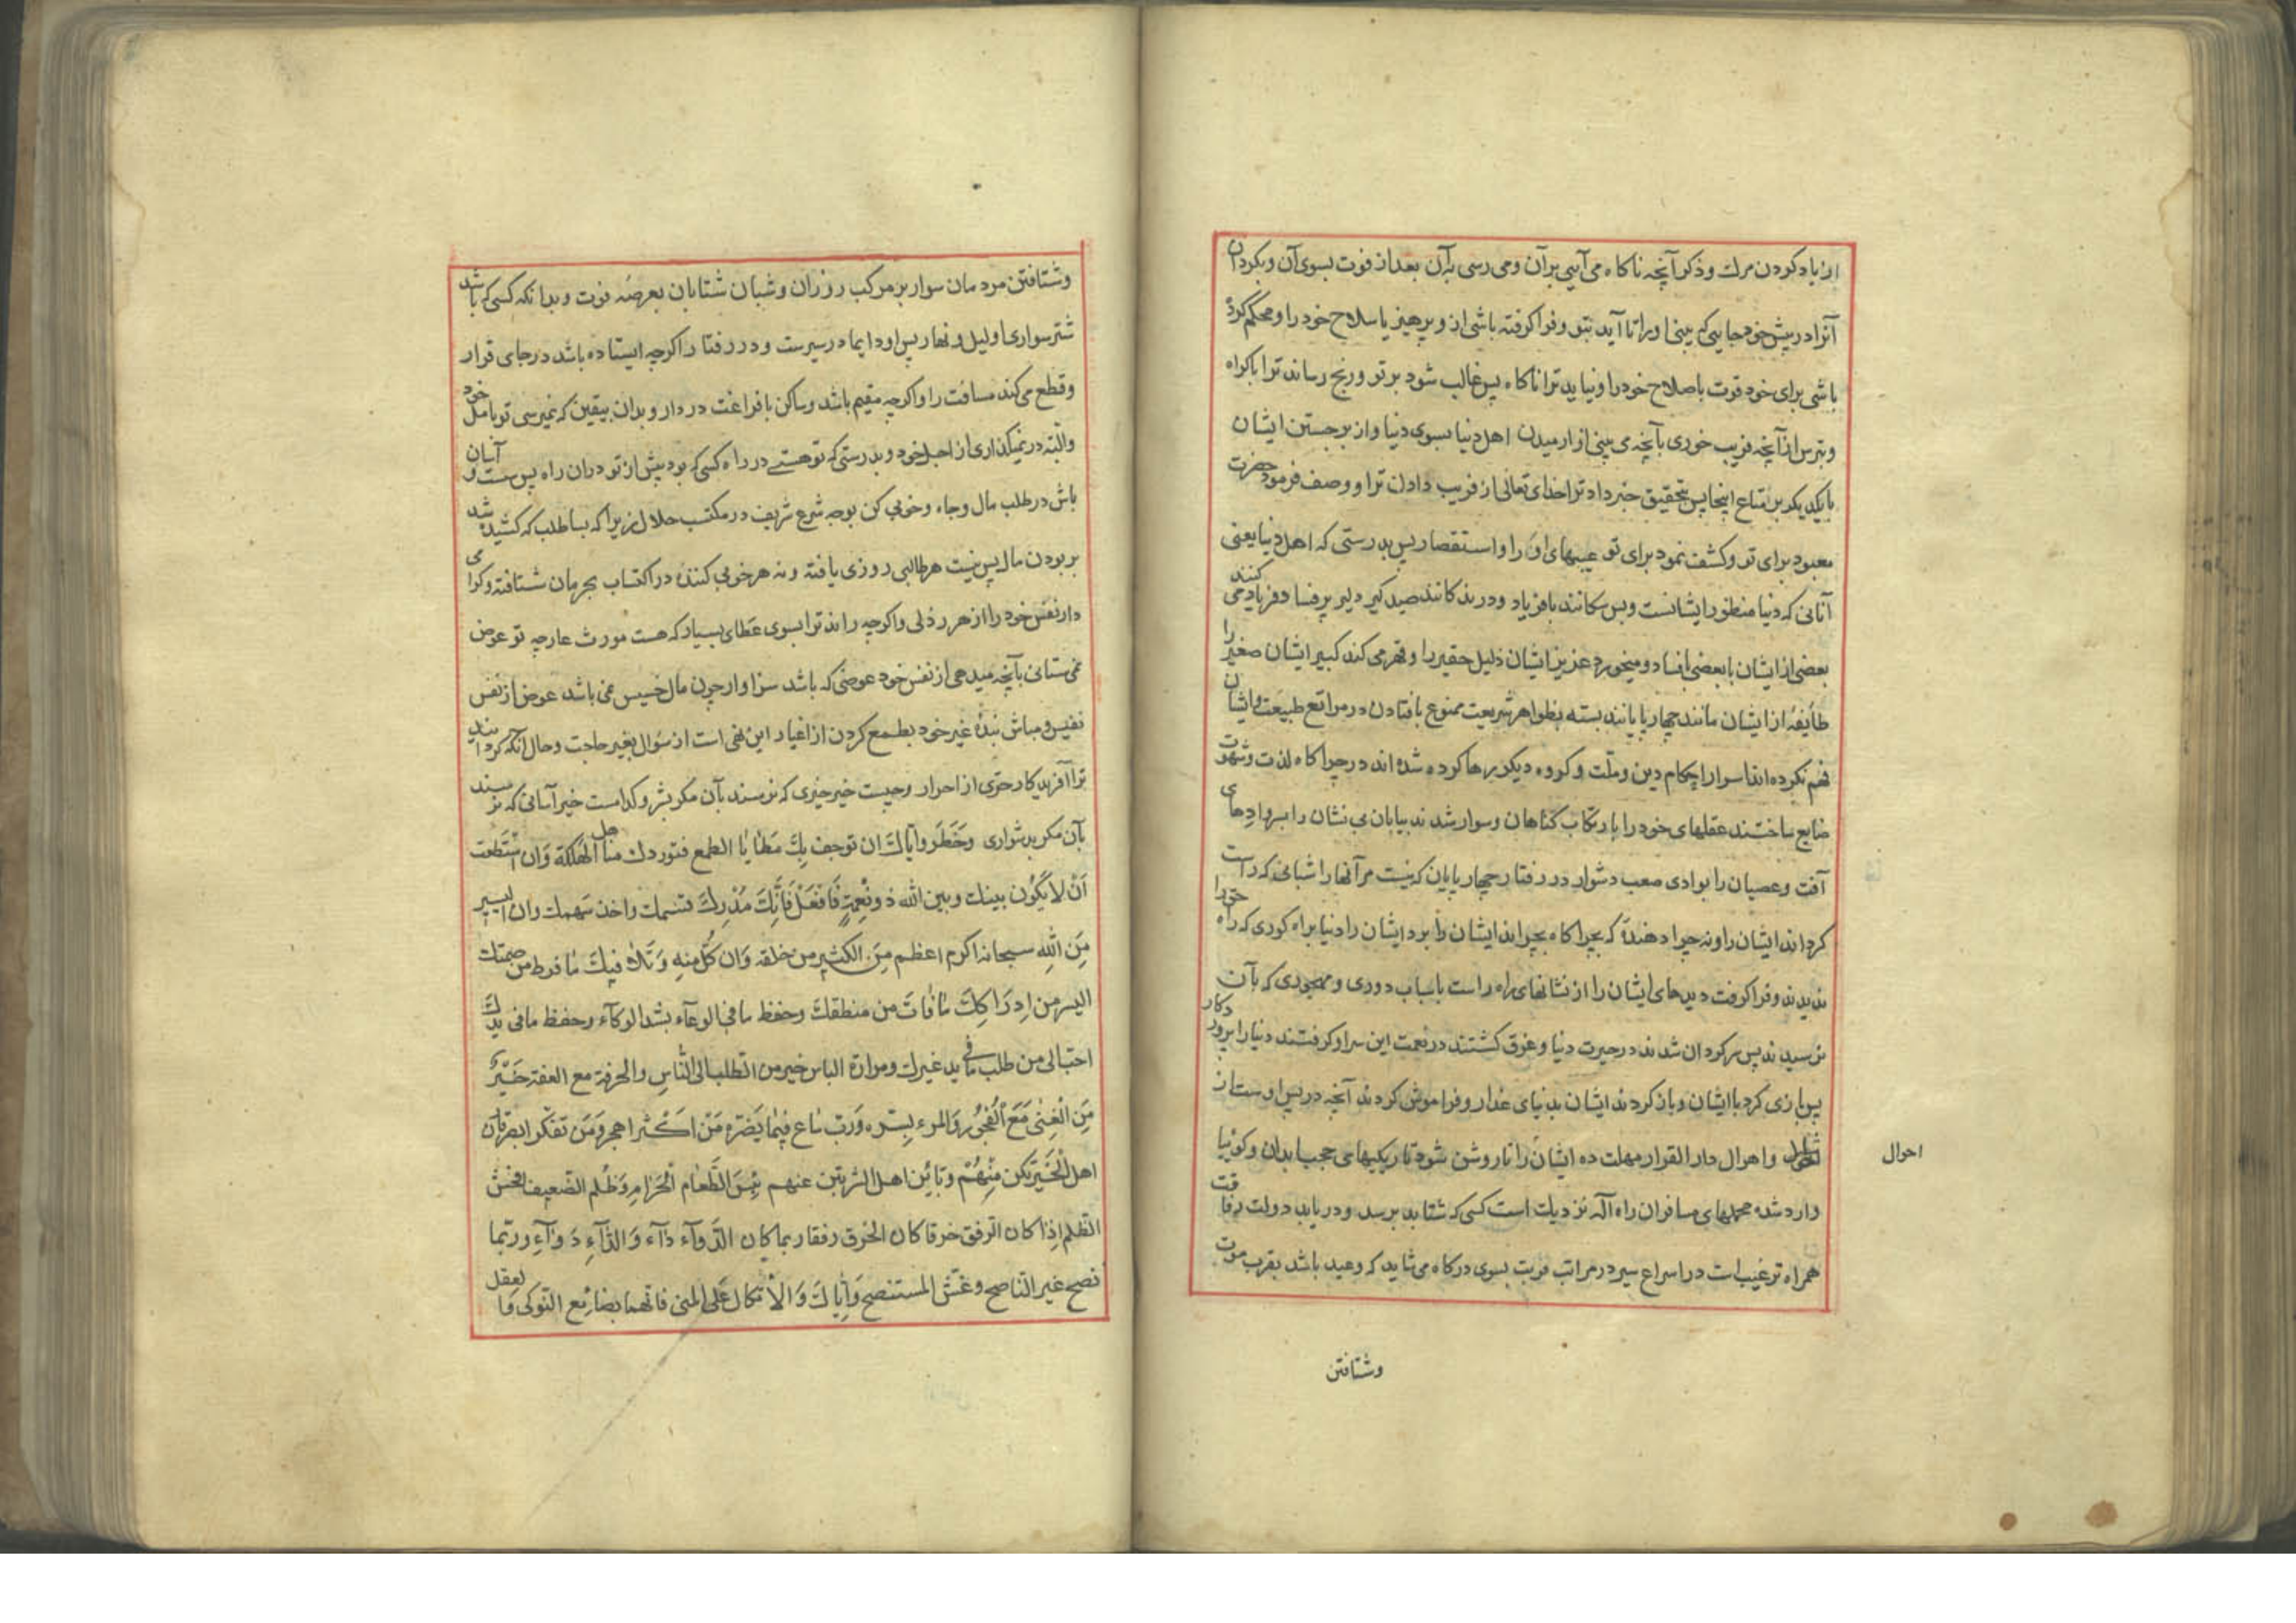 از یاد کردن مرك و ذکر آنچه ناکاه می آیی بر آن و می رسی بآن بعد از فوت بسوی آن و بکردان
آنرا در پیش خود جایی که بینی او را تا آید بتو و فرا کرفته باشی از و پرهیز یا سلاح خود را و محکم کرده
باشی برای خود قوت با صلاح خود را و نیاید ترا ناکاه پس غالب شود بر تو و رنج رساند ترا باکراه
و بترس از آنچه فریب خوری بآنچه می بینی از ارمیدن اهل دنیا بسوی دنیا و از برجستن ایشان
بایکدیکر بر متاع اینجا پس بتحقیق خبر داد ترا خدای تعالی از فریب دادن ترا و وصف فرمود حضرت
معبود برای تو و کشف نمود برای تو عیبهای او را و استقصار پس بدرستی که اهل دنیا یعنی
آنانی که دنیا منظور ایشانست و بس سکانند با فریاد و درندکانند صید کیر دلیر بر فساد و فریاد می کنند
بعضی از ایشان با بعضی بافساد و میخورد عزیز ایشان ذلیل حقیر را و قهر می کند کبیر ایشان صغیر را
طایفهٔ از ایشان مانند چهارپایانند بسته بظواهر شریعت ممنوع بافتادن در مراتع طبیعت و ایشان
فهم نکرده اند اسرار احکام دین و ملّت و کروه دیکر رها کرده شده اند در چراکاه لذت و شهوت
ضایع ساختند عقلهای خود را بارتکاب کناهان و سوار شدند بیابان بی نشان را بسر وادیهای
آفت و عصیان را بوادی صعب دشوار در رفتار چهارپایان که نیست مر آنها را شبانی که راست
کرداند ایشان را و نه چرا دهندهٔ که بچراکاه بچراند ایشان را برد ایشان را دنیا براه کوری که راه خود را
ندیدند و فرا کرفت دیدهای ایشان را از نشانهای راه راست باسباب دوری و مهجوری که بآن
نرسیدند پس سرکردان شدند در حیرت دنیا و غرق کشتند در نعمت این سرا و کرفتند دنیا را پروردکار
پس بازی کرد با ایشان و باز کردند ایشان بدنیای غدار و فراموش کردند آنچه در پس اوست از
و اهوال دار القرار مهلت ده ایشان را تا روشن شود تاریکیهای حجب ابدان و کوئیا
احوال
وارد شده محملهای مسافران راه آله نزدیك است کسی که شتابد برسد و دریابد دولت رفاقت
همراه ترغیب است در اسراع سیر در مراتب قربت بسوی درکاه می شاید که وعید باشد بقرب موت
وشتافتن
وشتافتن مردمان سوار بر مرکب روزان و شبان شتابان بعرصه فوت و بدانکه کسی که باشد
شتر سواری او لیل و نهار پس او دایما در سیرست و در رفتار اکرچه ایستاده باشد در جای قرار
و قطع می کند مسافت را و اکرچه مقیم باشد و ساکن بافراغت در دار و بدان بیقین که نمیرسی تو بامل خود
و البته در نمیکذاری از اجل خود و بدرستی که تو هستی در راه کسی که بود پیش از تو در ان راه پس سست و آسان
باش در طلب مال و جاه و خوبی کن بوجه شرع شریف در مکتسب حلال زیرا که بسا طلب که کشیده شد
بربودن مال پس نیست هر طالبی روزی یافته و نه هر خوبی کننده در اکتساب بحرمان شتافته و کرامی
دار نفس خود را از هر رذلی و اکرچه راند ترا بسوی عطای بسیار که هست مورث عار چه تو عوض
نمی ستانی بآنچه میدهی از نفس خود عوضی که باشد سزاوار چون مال خسیس نمی باشد عوض از نفس
نفیس و مباش بندهٔ غیر خود بطمع کردن از اغیار این نهی است از سؤال بغیر حاجت و حال آنکه کردانید
ترا آفریدکار حرّی از احرار و چیست خیر خیری که نرسند بآن مکر بشر و کدامست خیر آسانی که نرسند
بآن مکر بدشواری و خطر و ایاك ان توجف بك مطایا الطمع فتوردك مناهل الهلکة و ان استطعت
ان لا یکون بینك و بین الله ذو نعمة فافعل فانك مدرك قسمك و اخذ سهمك و ان الیسیر
من الله سبحانه اکرم اعظم من الکثیر من خلقه و ان کل منه و تلافیك ما فرط من صمتك
الیسر من ادراکك ما فات من منطقك و حفظ ما فی الوعآء بشد الوکآء و حفظ ما فی یدك
احب الی من طلب ما فی ید غیرك و مرارة الیاس خیر من الطلب الی الناس و الحرفة مع العفة خیر
من الغنی مع الفجور و المرء بسره و رب ساع فیما یضره من اکثر اهجر و من تفکر ابصر قارن
اهل الخیر تکن منهم و باین اهل الشر تبن عنهم بئس الطعام الحرام و ظلم الضعیف افحش
الظلم اذا کان الرفق خرقا کان الخرق رفقا ربما کان الدوآء دآء و الدآء دوآء و ربما
نصح غیر الناصح و غش المستنصح و ایاك و الاتکال علی المنی فانها بضائع النوکی و العقل